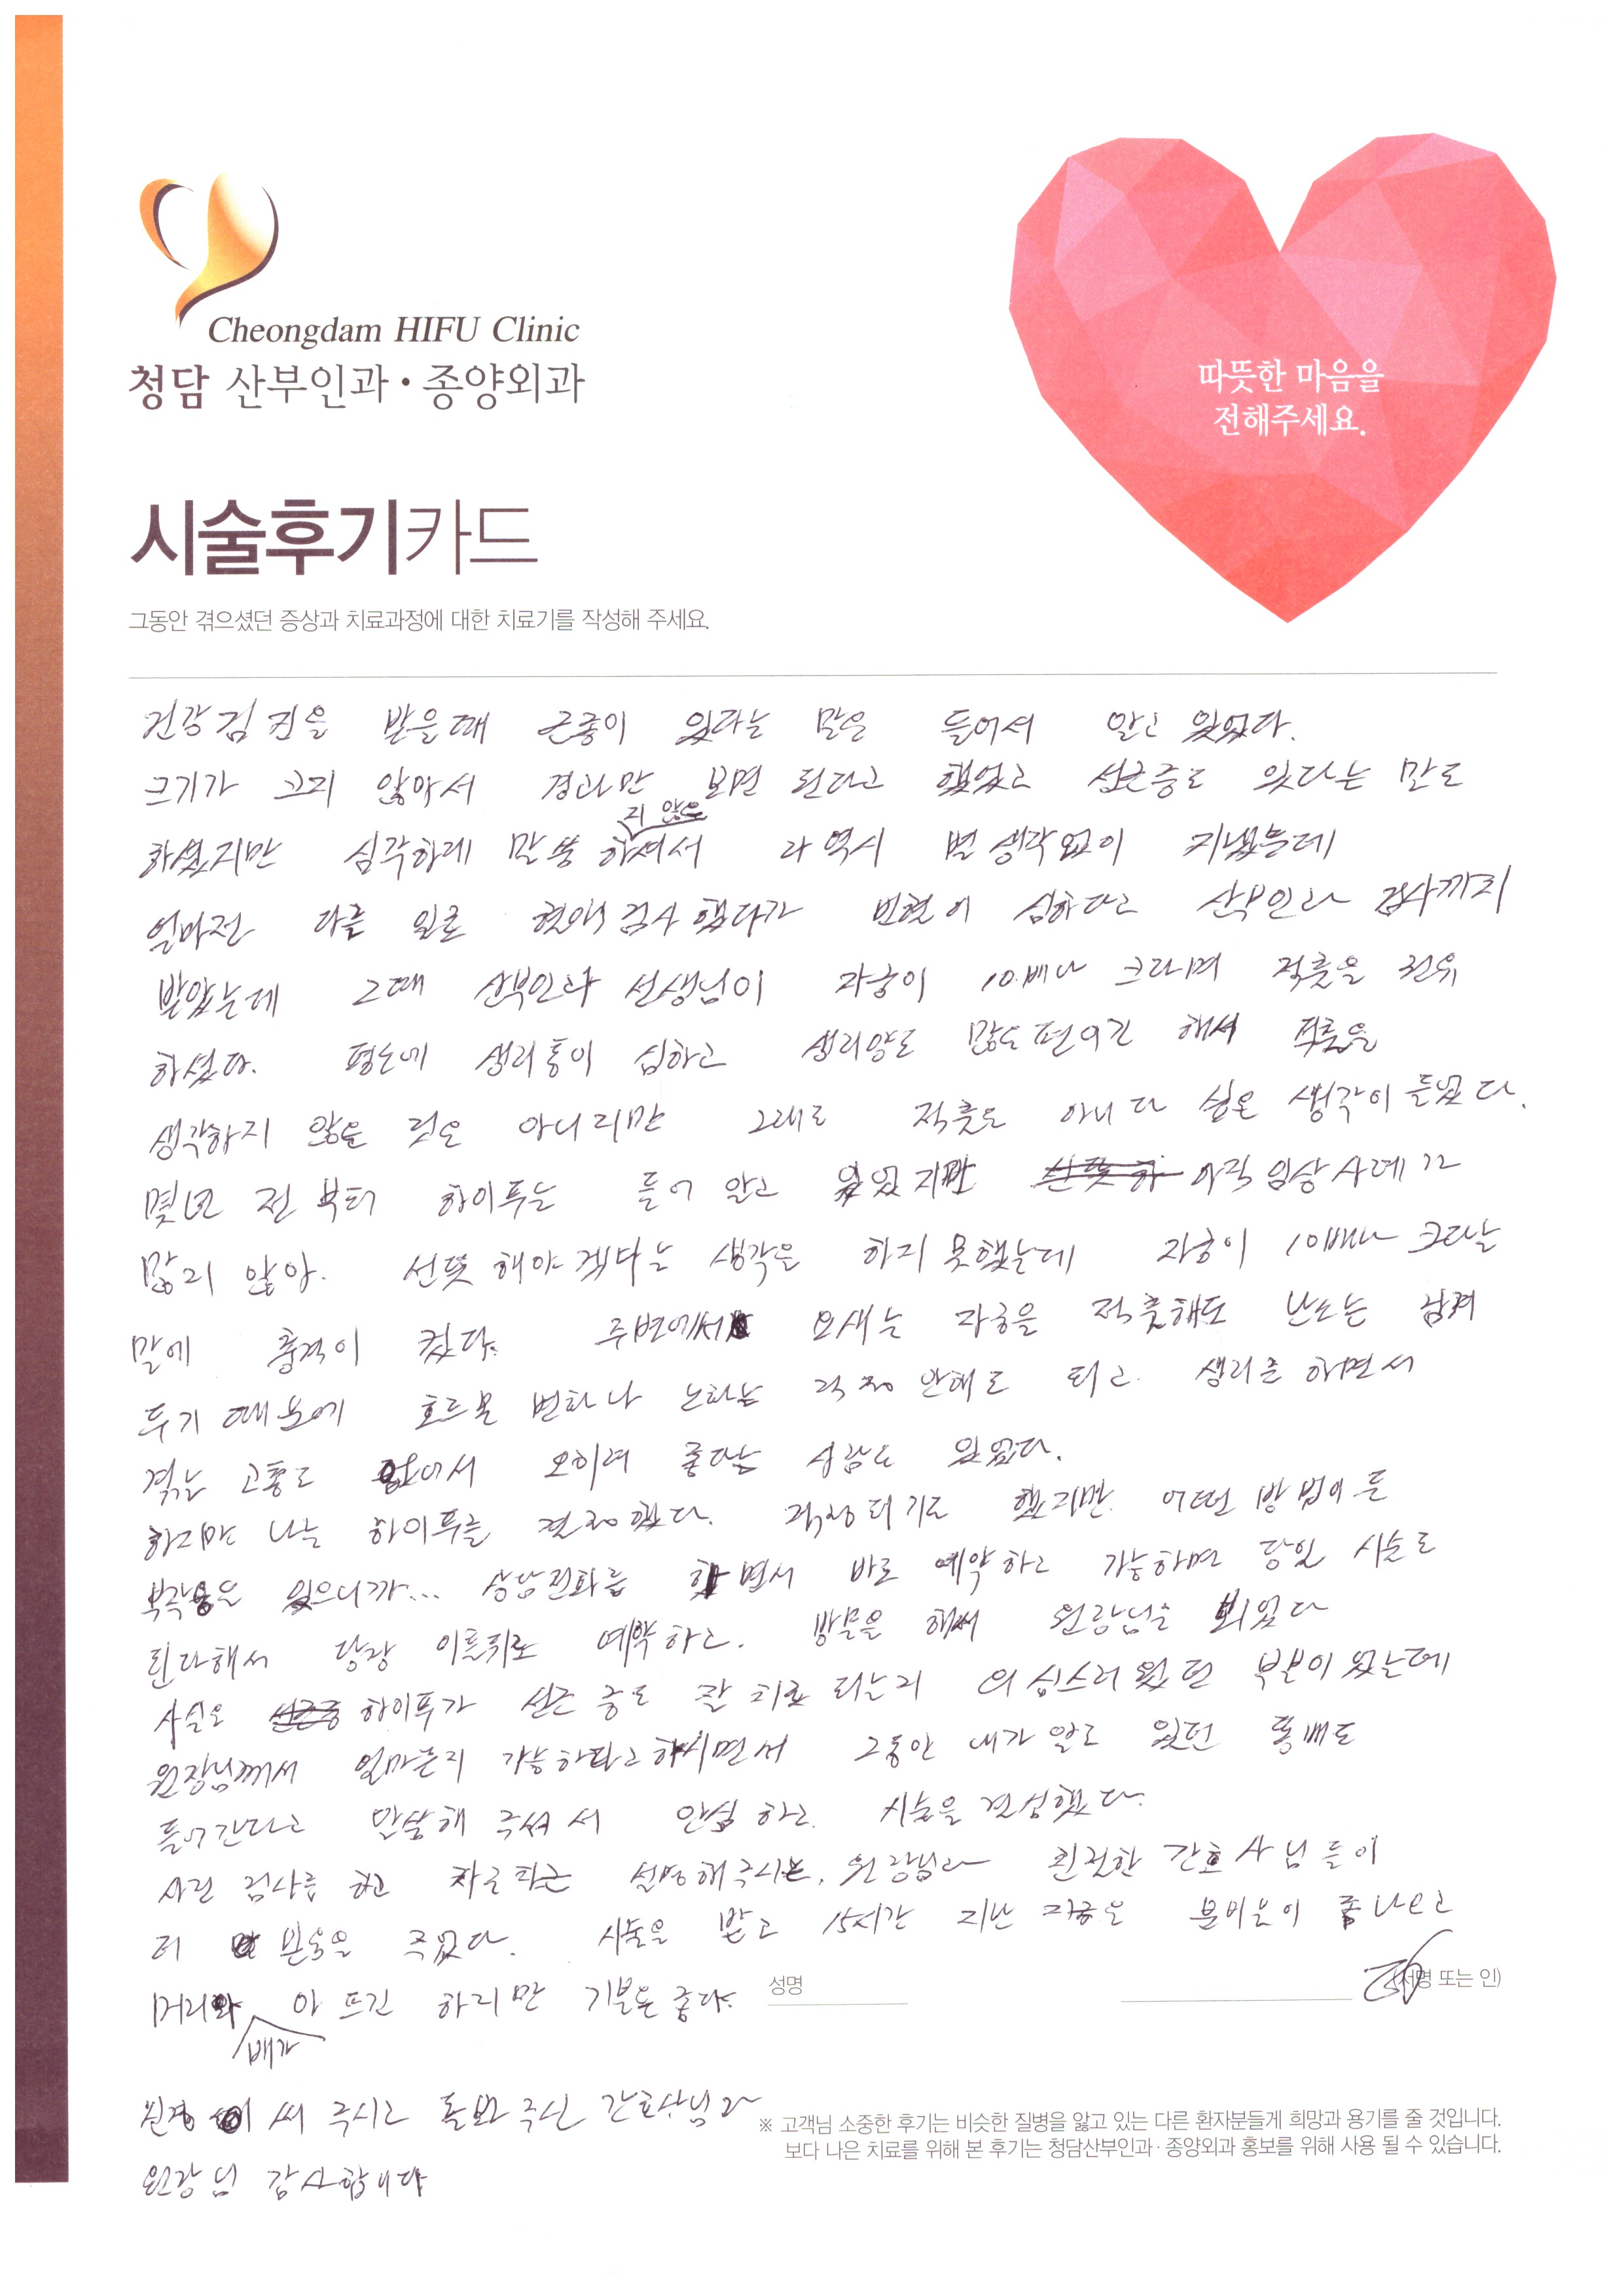 Cheongdam HIFU Clinic
청담 산부인과·종양외과
따뜻한 마음을
전해주세요.
시술후기카드
그동안 겪으셨던 증상과 치료과정에 대한 치료기를 작성해 주세요.
건강검진을 받을때 근종이 있다는 말은 들어서 알고 있었다.
크기가 크지 않아서 경과만 보면 된다고 했었고 선근증도 있다는 말도
지 않으
하셨지만 심각하게 말씀 하셔서 나 역시 별 생각없이 지냈는데
얼마전 다른 일로 혈액검사 했다가 빈혈이 심하다고 산부인과 검사까지
받았는데 그때 산부인과 선생님이 자궁이 10배나 크다며 적출을 권유
하셨다. 평소에 생리통이 심하고 생리양도 많은 편이긴 해서 적출을
생각하지 않은 것은 아니지만 그래도 적출은 아니다 싶은 생각이 들었다.
몇년 전부터 하이푸는 들어 알고 있었지만 아직 임상사례가
많지 않아. 선뜻 해야겠다는 생각은 하지 못했는데 자궁이 10배나 크다는
말에 충격이 컸다. 주변에서 요새는 자궁을 적출해도 난소는 남겨
두기 때문에 호르몬 변화나 노화는 걱정 안해도 되고. 생리를 하면서
겪는 고통도 없어서 오히려 좋다는 사람도 있었다.
하지만 나는 하이푸를 결정했다. 걱정되기도 했지만. 어떤 방법이든
부작용은 있으니까... 상담전화를 하면서 바로 예약하고 가능하면 당일 시술도
된다해서 당장 이틀뒤로 예약하고. 방문을 해서 원장님을 뵈었다
사실은 하이푸가 선근증도 잘 치료되는지 의심스러웠던 부분이 있는데
원장님께서 얼마든지 가능하다고 하시면서 그동안 내가 알고 있던 통해도
들어간다고 말씀해 주셔서 안심하고. 시술을 결심했다.
사전 검사를 하고 차근차근 설명해주시는. 원장님과 친절한 간호사님들이
더 믿음을 주었다. 시술을 받고 15시간 지난 지금은 분비물이 좀 나오고
배가
1거리와 아프긴 하지만 기분은 좋다.
성명
(서명 또는 인)
신경 써 주시고 돌봐주신 간호사님과
원장님 감사합니다
※ 고객님 소중한 후기는 비슷한 질병을 앓고 있는 다른 환자분들게 희망과 용기를 줄 것입니다.
보다 나은 치료를 위해 본 후기는 청담산부인과·종양외과 홍보를 위해 사용 될 수 있습니다.